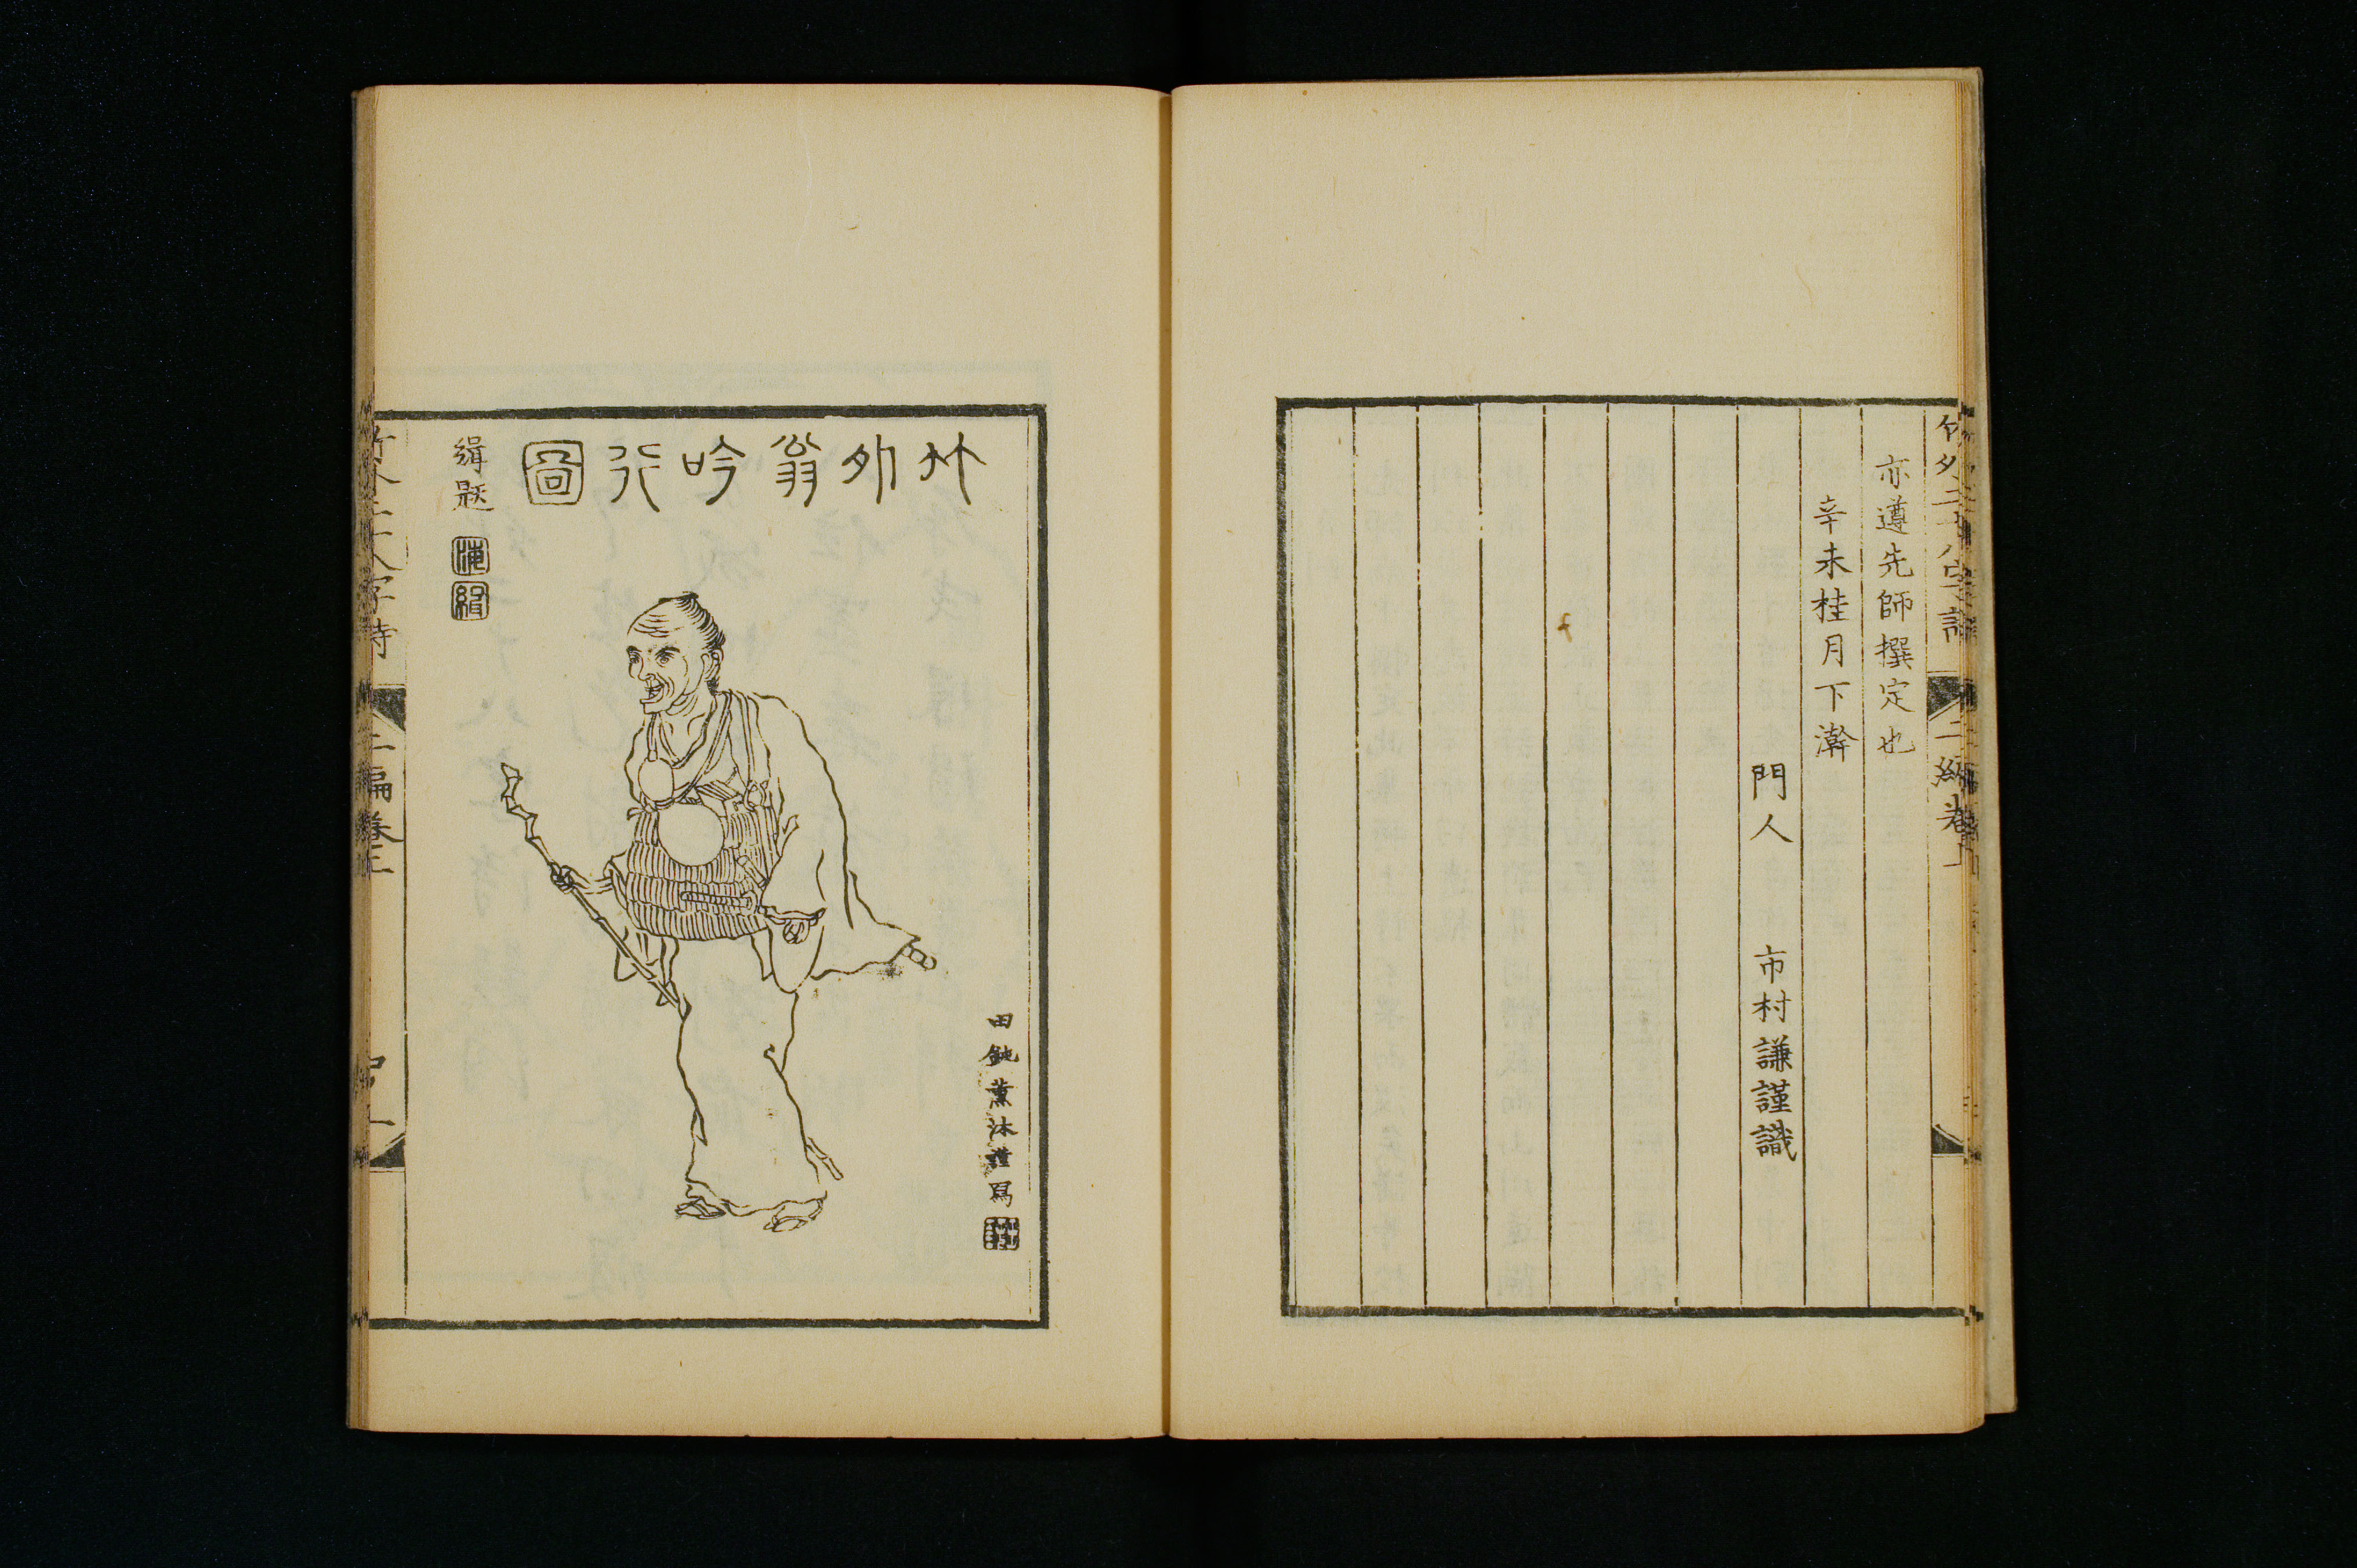 亦遵先師撰定也
辛未桂月下澣
門人 市村謙謹識
竹外二十八字詩 二編卷上
竹外翁吟行圖
緝題
田鈍薰沐謹寫
竹外二十八字詩 二編卷上